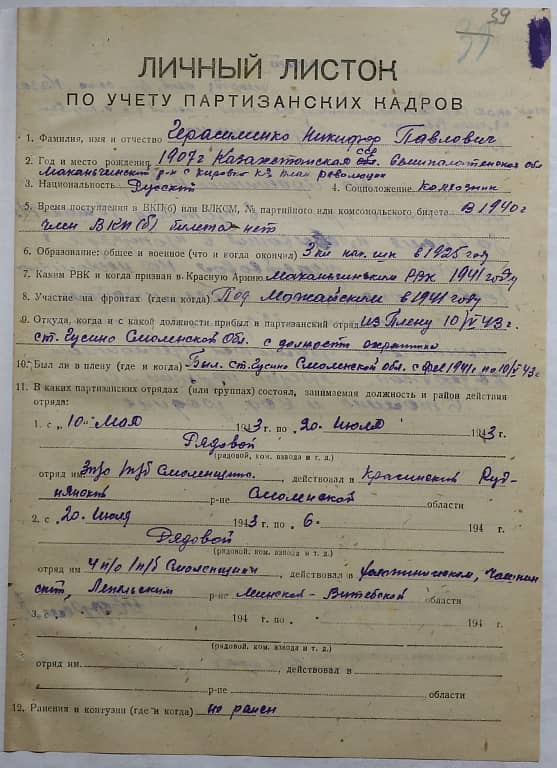 39
39
ЛИЧНЫЙ ЛИСТОК
ПО УЧЕТУ ПАРТИЗАНСКИХ КАДРОВ
1. Фамилия, имя и отчество Герасименко Никифор Павлович
2. Год и место рождения 1907 г Казахстанская ССР Семипалатинская обл
Маканчинский р-н с Кировка к-з план революции
3. Национальность Русский 4. Соцположение Колхозник
5. Время поступления в ВКП(б) или ВЛКСМ, № партийного или комсомольского билета В 1940 г
член ВКП(б) билета нет
6. Образование: общее и военное (что и когда окончил) 3 кл нач. шк в 1925 году
7. Каким РВК и когда призван в Красную Армию Маканчинским РВК 1941 году
8. Участие на фронтах (где и когда) Под Можайском в 1941 году
9. Откуда, когда и с какой должности прибыл в партизанский отряд из Плену 10/V 43 г.
ст. Гусино Смоленской Обл. с должности охранника
10. Был ли в плену (где и когда) Был. ст. Гусино Смоленской обл. с 1941 г по 10/V 43 г
11. В каких партизанских отрядах (или группах) состоял, занимаемая должность и район действия
отряда:
1. с „10“ Мая 1943 г. по „20“ Июля 1943 г.
Рядовой
(рядовой, ком. взвода и т. д.)
отряд им. 3 п/о п/б Смоленщина, действовал в Краснинский Руд-
нянский р-не Смоленской области
2. с „20“ Июля 1943 г. по „6“ 194 г.
Рядовой
(рядовой, ком. взвода и т. д.)
отряд им 4 п/о п/б Смоленщина, действовал в Чашник
ский, Лепельским р-не Минской - Витебской области
3. 194 г. по 194 г.
(рядовой, ком. взвода и т. д.)
отряд им. , действовал в
р-не области
12. Ранения и контузии (где и когда) не ранен